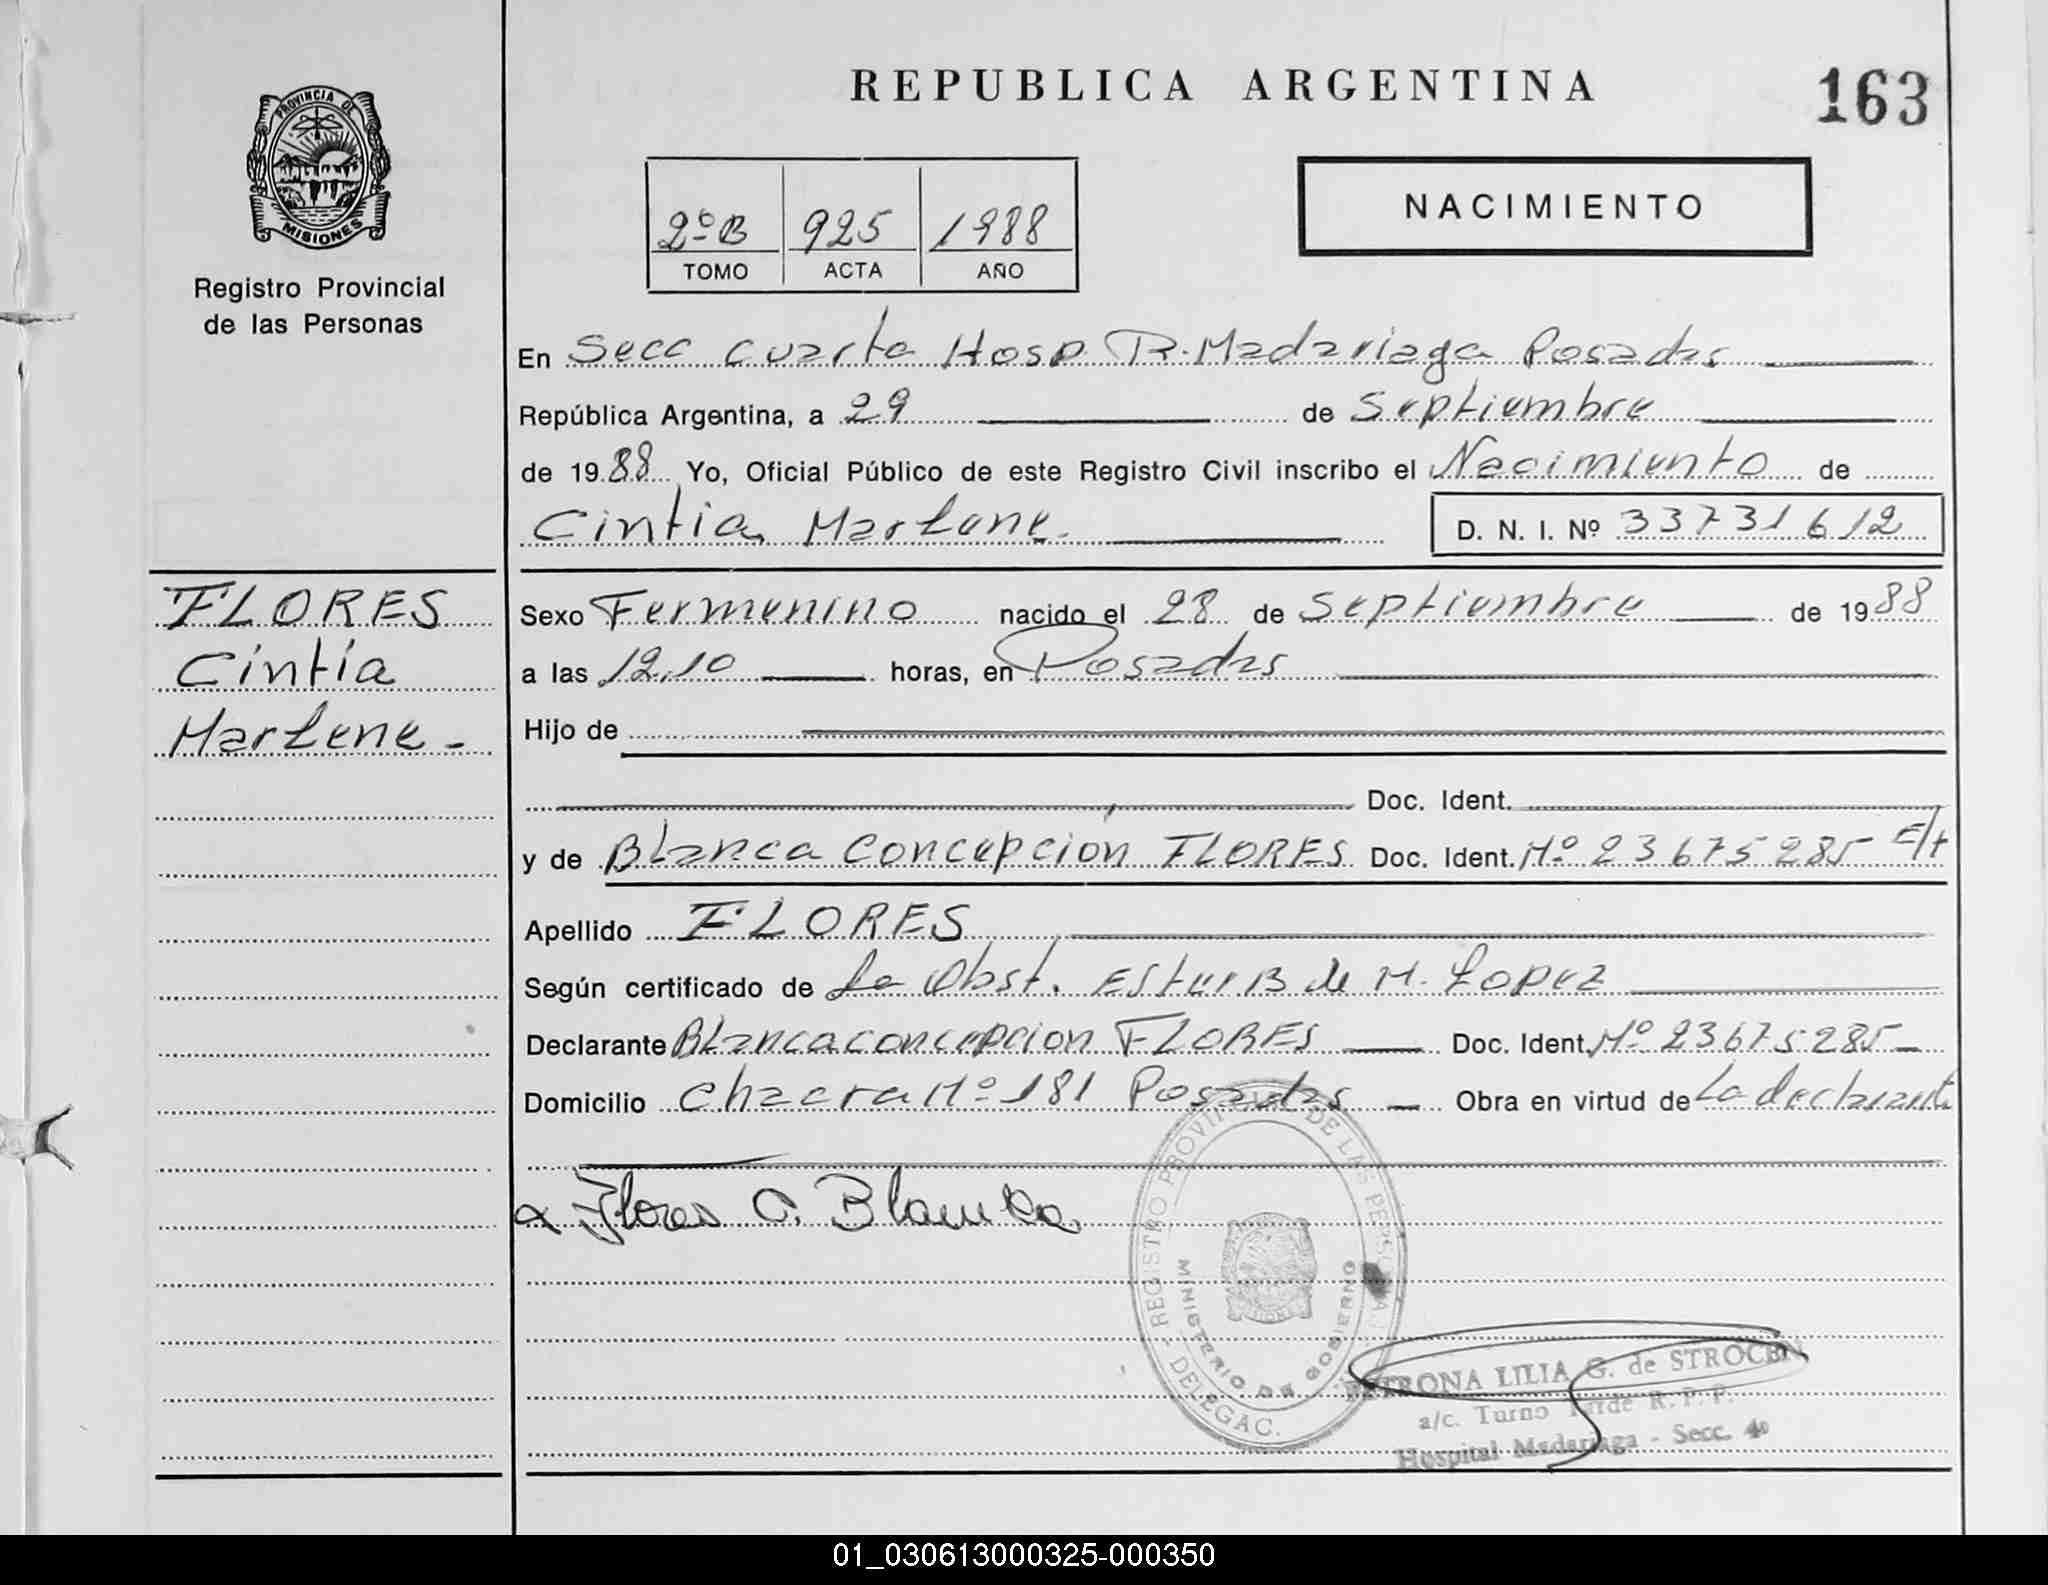 REPUBLICA ARGENTINA
163
PROVINCIA DE
MISIONES
Registro Provincial
de las Personas
2º B 925 1988
TOMO ACTA AÑO
NACIMIENTO
En Secc cuarta Hosp R. Madariaga Posadas
República Argentina, a 29 de Septiembre
de 1988 Yo, Oficial Público de este Registro Civil inscribo el Nacimiento de
Cintia Marlene.
D. N. I. Nº 33731612
FLORES
Cintia
Marlene -
Sexo Fermenino nacido el 28 de Septiembre de 1988
a las 12,10 horas, en Posadas
Hijo de
Doc. Ident.
y de Blanca Concepción FLORES Doc. Ident. Nº 23675285 E/t
Apellido FLORES
Según certificado de La Obst. Ester B de M. Lopez
Declarante Blanca concepcion FLORES Doc. Ident. Nº 23675285
Domicilio Chacra Nº 181 Posadas Obra en virtud de La declarante
Flores C. Blanca
REGISTRO PROVINCIAL DE LAS PERSONAS
MINISTERIO DE GOBIERNO
- DELEGAC.
PETRONA LILIA G. de STROCEN
a/c. Turno Tarde R. P. P.
Hospital Madariaga - Secc. 4º
01_030613000325-000350